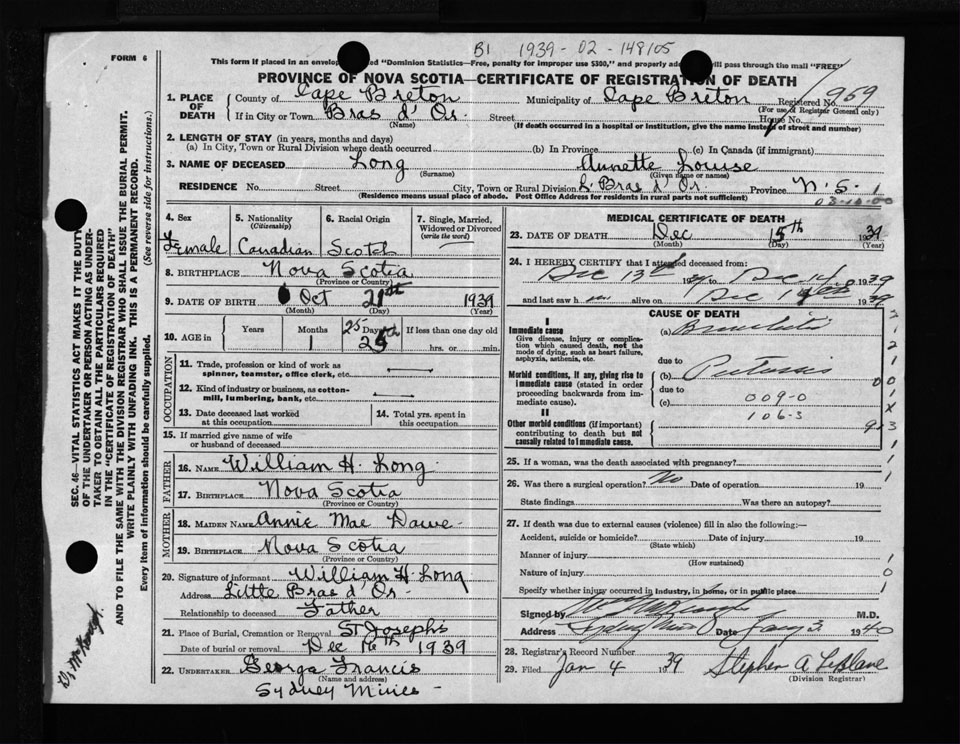 B1 1939-02-148105
FORM 6
This form if placed in an envelop ed "Dominion Statistics—Free, penalty for improper use $300," and properly ad will pass through the mail "FREE"
PROVINCE OF NOVA SCOTIA—CERTIFICATE OF REGISTRATION OF DEATH
1. PLACE OF DEATH County of Cape Breton Municipality of Cape Breton Registered No. 959
(For use of Registrar General only)
If in City or Town Bras d'Or Street House No.
(Name) (If death occurred in a hospital or institution, give the name instead of street and number)
2. LENGTH OF STAY (in years, months and days)
(a) In City, Town or Rural Division where death occurred (b) In Province (c) In Canada (if immigrant)
3. NAME OF DECEASED Long Annette Louise
(Surname) (Given name or names)
RESIDENCE No. Street City, Town or Rural Division L. Bras d'Or Province N.S. 1
(Residence means usual place of abode. Post Office Address for residents in rural parts not sufficient)
03-10-00
4. Sex 5. Nationality (Citizenship) 6. Racial Origin 7. Single, Married, Widowed or Divorced (write the word)
Female Canadian Scotch
8. BIRTHPLACE Nova Scotia
(Province or Country)
9. DATE OF BIRTH Oct 21th 1939
(Month) (Day) (Year)
10. AGE in Years Months Days If less than one day old
1 25 hrs. or min.
OCCUPATION
11. Trade, profession or kind of work as spinner, teamster, office clerk, etc.
12. Kind of industry or business, as cotton-mill, lumbering, bank, etc.
13. Date deceased last worked at this occupation
14. Total yrs. spent in this occupation
15. If married give name of wife or husband of deceased
FATHER
16. NAME William H. Long
17. BIRTHPLACE Nova Scotia
(Province or Country)
MOTHER
18. MAIDEN NAME Annie Mae Dawe
19. BIRTHPLACE Nova Scotia
(Province or Country)
20. Signature of informant William H Long
Address Little Bras d'Or
Relationship to deceased Father
21. Place of Burial, Cremation or Removal St Josephs
Date of burial or removal Dec 16th 1939
22. UNDERTAKER George Francis
(Name and address)
Sydney Mines
MEDICAL CERTIFICATE OF DEATH
23. DATE OF DEATH Dec 15th 1939
(Month) (Day) (Year)
24. I HEREBY CERTIFY that I attended deceased from:
Dec 13th 39 to Dec 14 1939
and last saw h alive on Dec 14 1939
CAUSE OF DEATH
I
Immediate cause (a) Bronchitis
Give disease, injury or complication which caused death, not the mode of dying, such as heart failure, asphyxia, asthenia, etc.
due to
Morbid conditions, if any, giving rise to immediate cause (stated in order proceeding backwards from immediate cause).
(b) Pertussis
due to
(c) 009-0
106-3
II
Other morbid conditions (if important) contributing to death but not causally related to immediate cause.
25. If a woman, was the death associated with pregnancy?
26. Was there a surgical operation? No Date of operation 19
State findings Was there an autopsy?
27. If death was due to external causes (violence) fill in also the following:—
Accident, suicide or homicide? Date of injury 19
(State which)
Manner of injury
(How sustained)
Nature of injury
Specify whether injury occurred in industry, in home, or in public place
Signed by M.D.
Address Sydney Mines Date Jany 3 1940
28. Registrar's Record Number
29. Filed Jan 4 1939 Stephen A LeBlanc
(Division Registrar)
SEC. 46—VITAL STATISTICS ACT MAKES IT THE DUTY OF THE UNDERTAKER OR PERSON ACTING AS UNDERTAKER TO OBTAIN ALL THE PARTICULARS REQUIRED IN THE "CERTIFICATE OF REGISTRATION OF DEATH"
AND TO FILE THE SAME WITH THE DIVISION REGISTRAR WHO SHALL ISSUE THE BURIAL PERMIT.
WRITE PLAINLY WITH UNFADING INK. THIS IS A PERMANENT RECORD.
Every item of information should be carefully supplied. (See reverse side for instructions.)